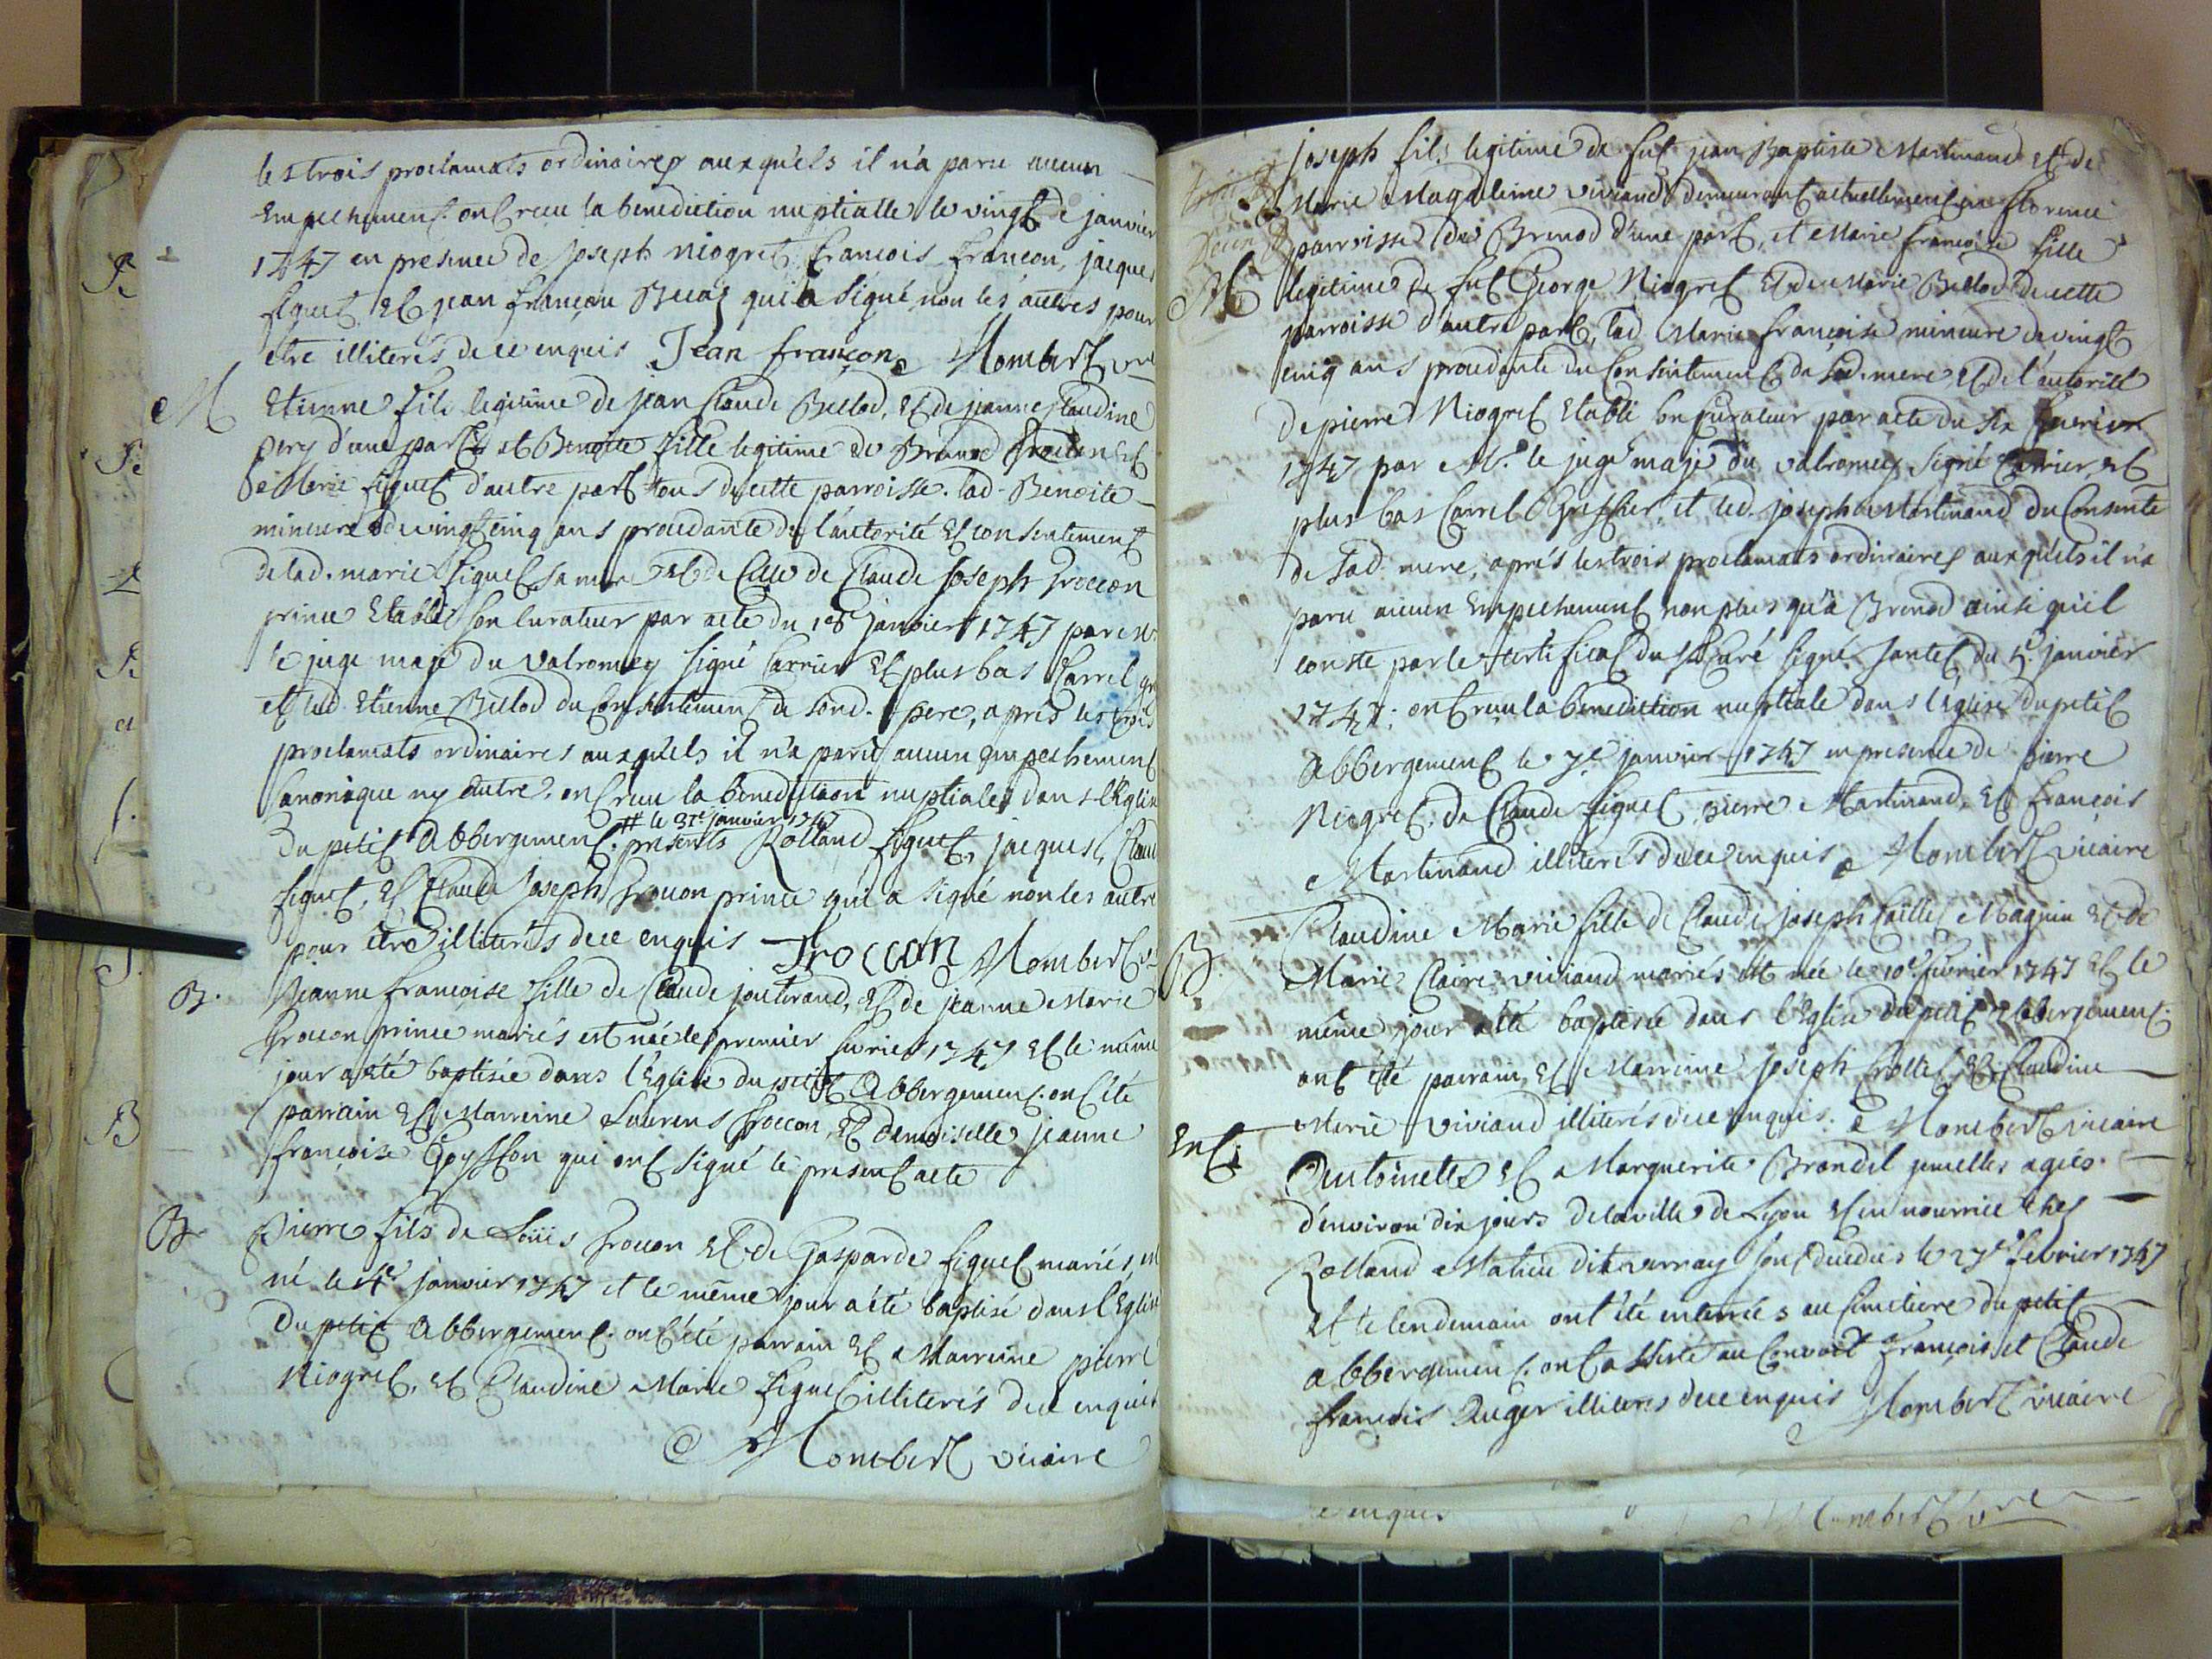 les trois proclamats ordinaires auxquels il n'a paru aucun
Empechement. ont reçu la benediction nuptialle le vingt de janvier
1747 en presence de Joseph Niogret, francois francon, jacques
figuet, et jean françon Buaz qui a signé, non les autres pour
etre illiterés de ce enquis Jean françon Mombert vic
M
Etienne fils legitime de jean Claude Billod, et de jeanne Claudine
Pery d'une part, et Benoîte fille legitime de Brunod Troccon et
de Marie figuet d'autre part tous de cette parroisse. lad. Benoite
mineure de vingt cinq ans procedante de l'autorité et consentement
de lad. marie figuet sa mere et de Celle de Claude Joseph Troccon
prince Etabli son curateur par acte du 18 janvier 1747 par Mr
le juge maje du valromey signé Carrier et plus bas Carrel gr
et led. Etienne Billod du Consentement de sond. pere, après les trois
proclamats ordinaires auxquels il n'a paru aucun empechement
Canonique ny autre, ont reçu la benediction nuptiale dans l'Eglise
# le 31e janvier 1747
Du petit Abbergement. presents Rolland figuet, jacques, Claude
figuet, et Claude Joseph Trocon prince qui a signé non les autre
pour etre illiterés de ce enquis Troccon Mombert v
B.
Jeanne francoise fille de Claude jouterand, et de jeanne Marie
Trocon prince mariés est née le premier fevrier 1747 et le même
jour a été baptisée dans l'Eglise du petit Abbergement. ont été
parrain et Marreine Laurens Troccon, et demoiselle jeanne
françoise Goyffon qui ont signé le present acte
B.
Pierre fils de Loüis Trocon et de Gasparde figuet mariés, est
né le 4e janvier 1747 et le même jour a été baptisé dans l'Eglise
Du petit Abbergement. ont été parrain et Marreine pierre
Niogret, et Claudine Marie figuet illiterés de ce enquis
Mombert vicaire
Joseph fils legitime de fut jean Baptiste Martinand et de
Marie Magdeleine viviand demeurant actuellement en florence
parroisse de Brenod d'une part, et Marie francoise fille
M
legitime de fut George Niogret et de Marie Billod de cette
parroisse d'autre part, lad. Marie françoise mineure de vingt
cinq ans procedante du Consentement de sad. mere et de l'autorité
de pierre Niogret Etabli son Curateur par acte du six fevrier
1747 par Mr. le juge maje du valromey signé Carrier, et
plus bas Carrel Greffier, et led. joseph Martinand du Consente
de sad. mere, après les trois proclamats ordinaires auxquels il n'a
paru aucun empechement non plus qu'à Brenod ainsi qu'il
conste par le certificat du sr Curé signé Jantet, du 5e janvier
1747; ont reçu la benediction nuptiale dans l'Eglise du petit
Abbergement le 7e janvier 1747 en presence de pierre
Niogret, de Claude figuet, pierre Martinand, et françois
Martinand illiterés de ce enquis Mombert vicaire
B.
Claudine Marie fille de Claude joseph Maguin et de
Marie Claire viviand mariés est née le 10e fevrier 1747 et le
même jour a été baptisée dans l'Eglise du petit Abbergement.
ont été parrain, et Marreine joseph et Claudine
Marie viviand illiterés de ce enquis. Mombert vicaire
Ent.
Antoinette et Marguerite Brandil jumelles agées
d'environ dix jours de la ville de Lyon et en nourrice chez
Rolland Matieu dit vernay sont decedées le 27e fevrier 1747
et le lendemain ont été enterrées au Cimetiere du petit
abbergement. ont assisté au Convoit François, et Claude
françois Auger illiterés de ce enquis Mombert vicaire
enquis Mombert